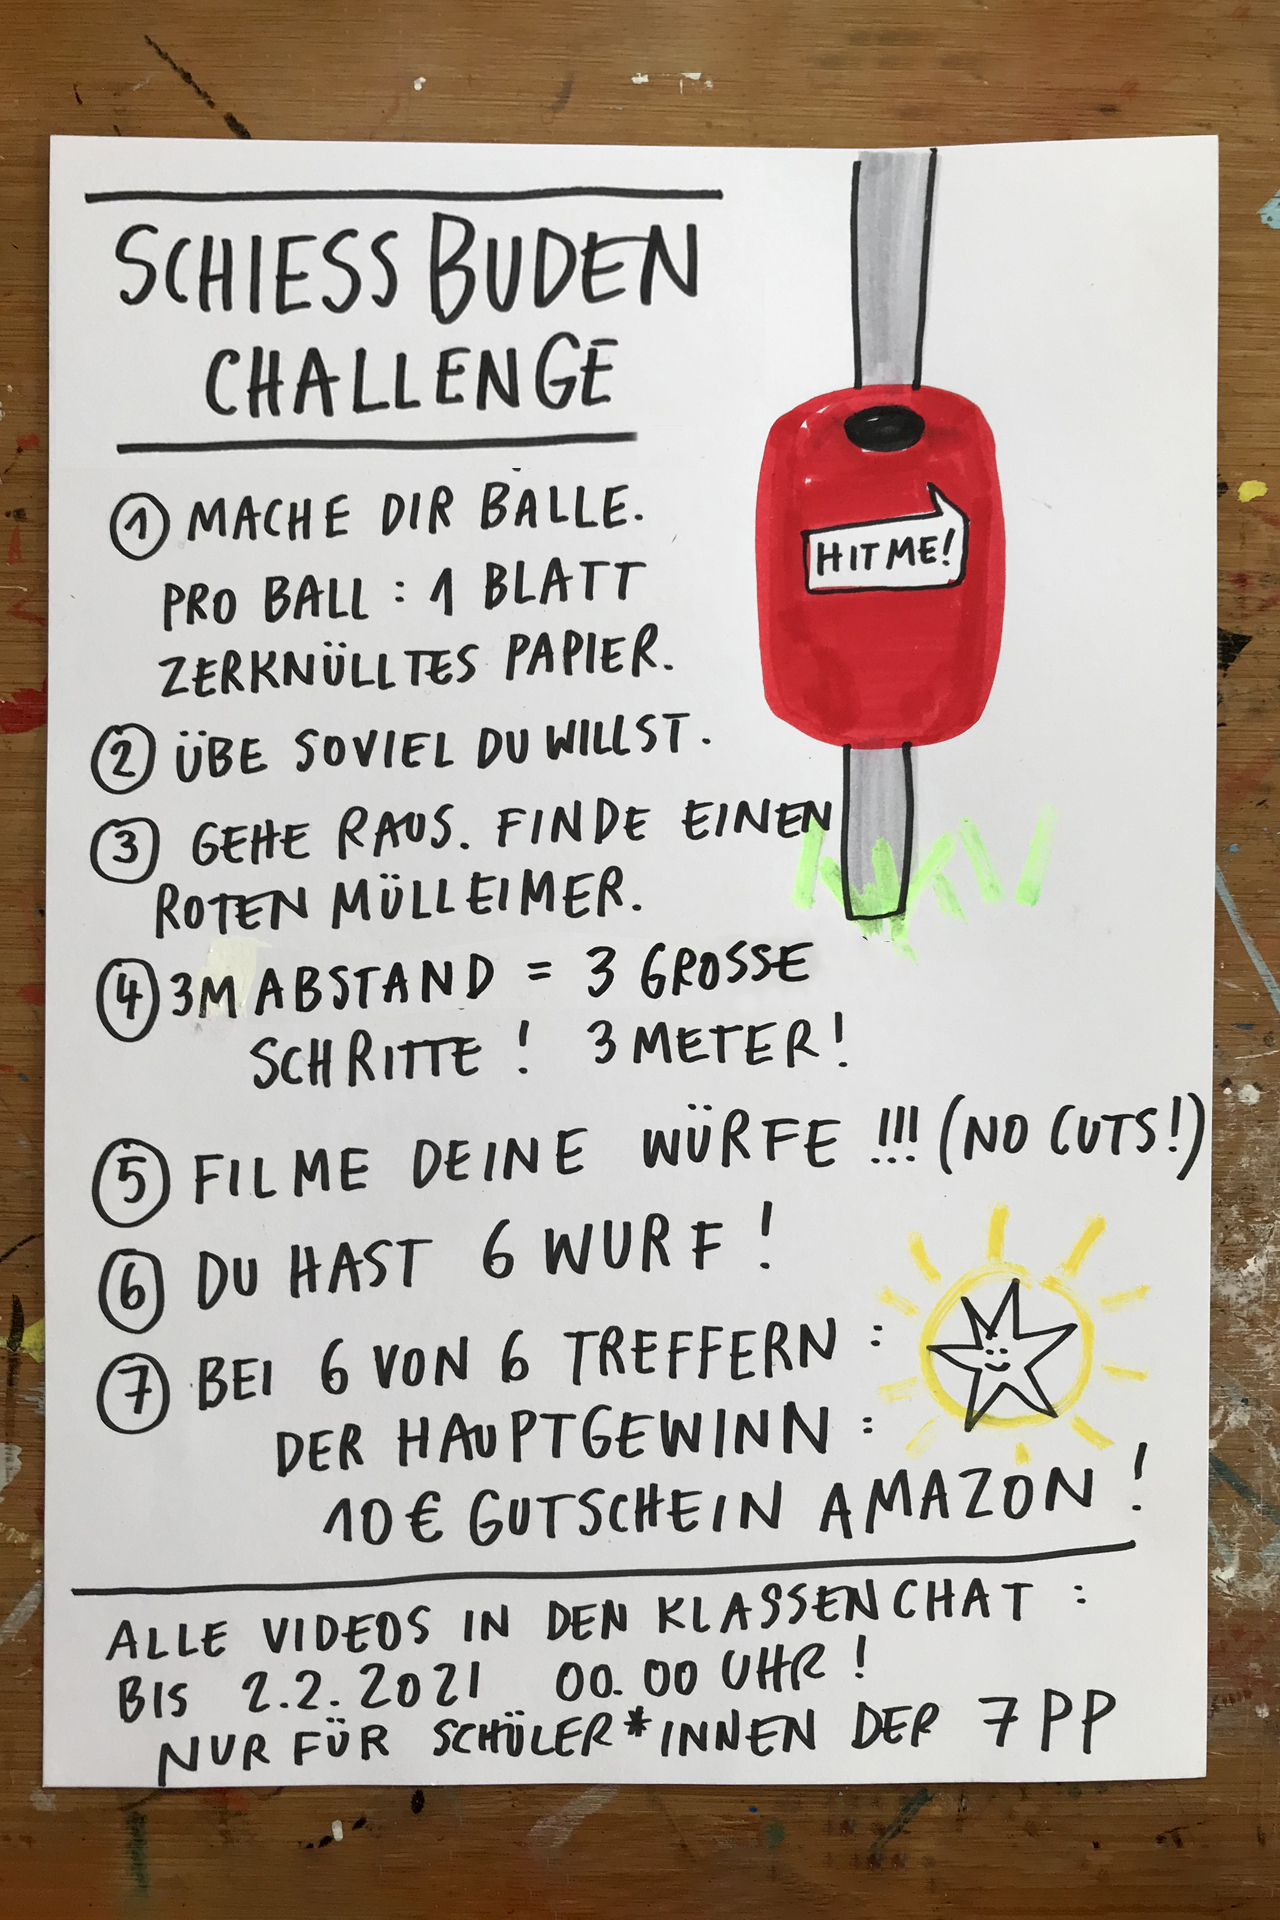 SCHIESS BUDEN
CHALLENGE
HIT ME!
① MACHE DIR BÄLLE.
PRO BALL : 1 BLATT
ZERKNÜLLTES PAPIER.
② ÜBE SOVIEL DU WILLST.
③ GEHE RAUS. FINDE EINEN
ROTEN MÜLLEIMER.
④ 3M ABSTAND = 3 GROSSE
SCHRITTE ! 3 METER!
⑤ FILME DEINE WÜRFE !!! (NO CUTS!)
⑥ DU HAST 6 WURF !
⑦ BEI 6 VON 6 TREFFERN :
DER HAUPTGEWINN :
10€ GUTSCHEIN AMAZON !
ALLE VIDEOS IN DEN KLASSENCHAT :
BIS 2.2.2021 00.00 UHR !
NUR FÜR SCHÜLER*INNEN DER 7PP